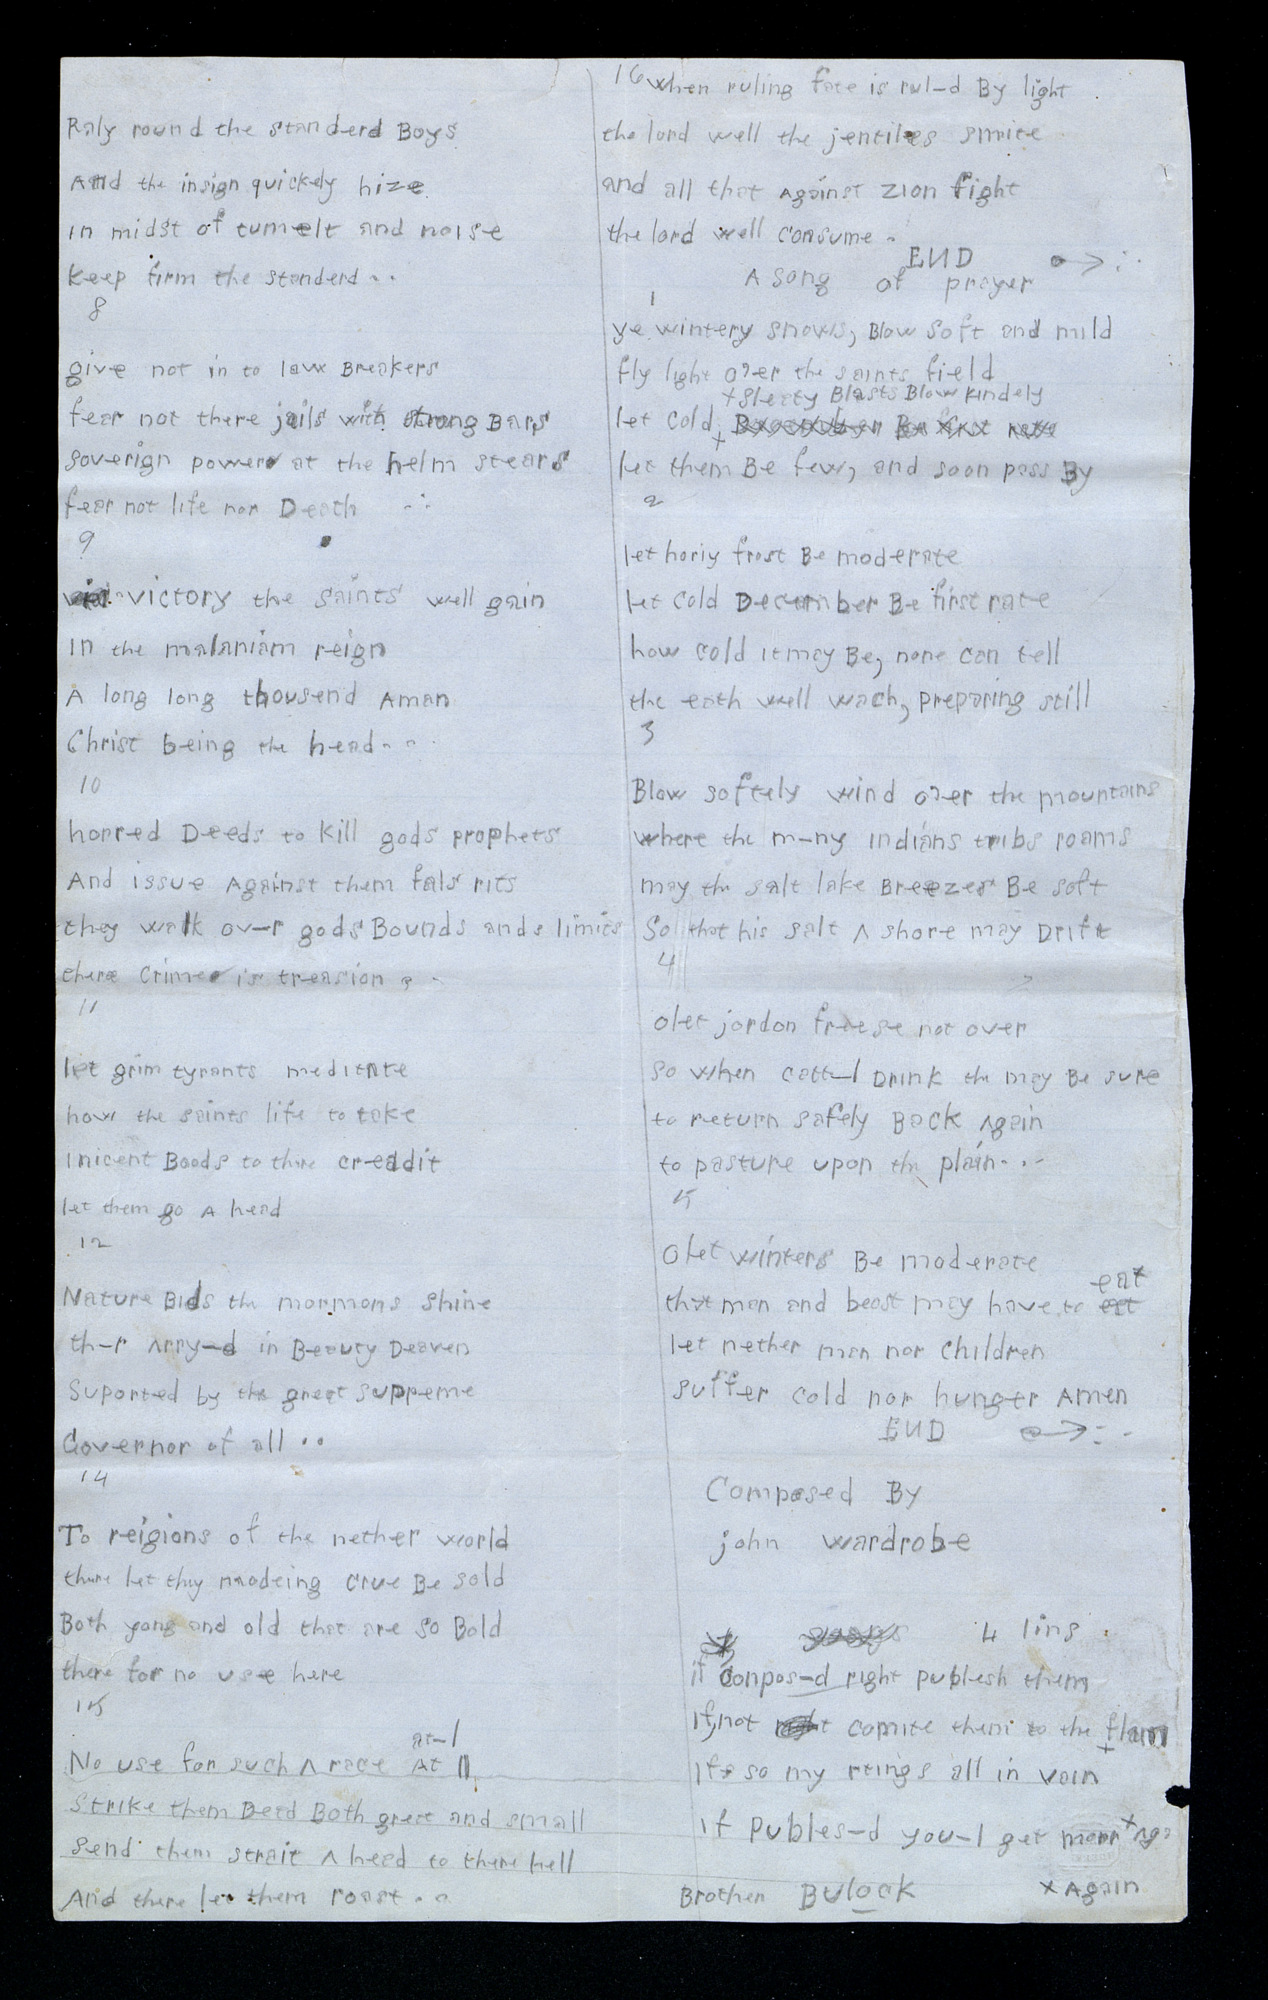 Raly round the standerd Boys
And the insign quickely hize
in midst of tumelt and noise
Keep firm the standerd
8
give not in to law Breakers
fear not there jails with strong Bars
soverign power at the helm stears
fear not life nor Death
9
victory the saints well gain
in the malaniam reign
A long long thousend Aman
Christ being the head
10
horred Deeds to kill gods prophets
And issue Against them fals rits
they walk over gods Bounds ands limits
there Crimes is treasion
11
let grim tyrants meditate
how the saints life to take
inicent Boods to there creddit
let them go A head
12
Nature Bids the mormons shine
ther Arrayed in Beauty Deaven
Suported by the great suppreme
Governor of all
14
To reigions of the nether world
there let thy crue Be sold
Both yong and old that are so Bold
there for no use here
15
at-l
No use for such A race At ll
strike them Deed Both greet and small
send them strait A heed to there hell
And there let them roast
16 when ruling fate is rul-d By light
the lord well the jentiles smite
and all that Against ZION fight
the lord well consume
END
A song of prayer
1
ye wintery snows, Blow soft and mild
fly light over the saints field
+ sleety Blasts Blow kindely
let cold +
let them Be few, and soon pass By
2
let horiy frost Be moderate
let cold December Be first rate
how cold it may Be, none can tell
the eath well wach, preparing still
3
Blow softely wind over the mountains
where the m-ny indians tribs roams
may the salt lake Breezes Be soft
So that his salt A shore may Drift
4
olet jordon freese not over
so when catt-l Drink the may Be sure
to return safely Back Again
to pasture upon the plain
15
Olet winters Be moderate
eat
that man and beast may have to eat
let nether man nor children
suffer cold nor hunger Amen
END
Composed By
john wardrobe
4 lins
if conpos-d right publesh them
if, not comite them to the flam
if so my rtings all in vain
if publes-d you-l get
Brother Bulock
x Again